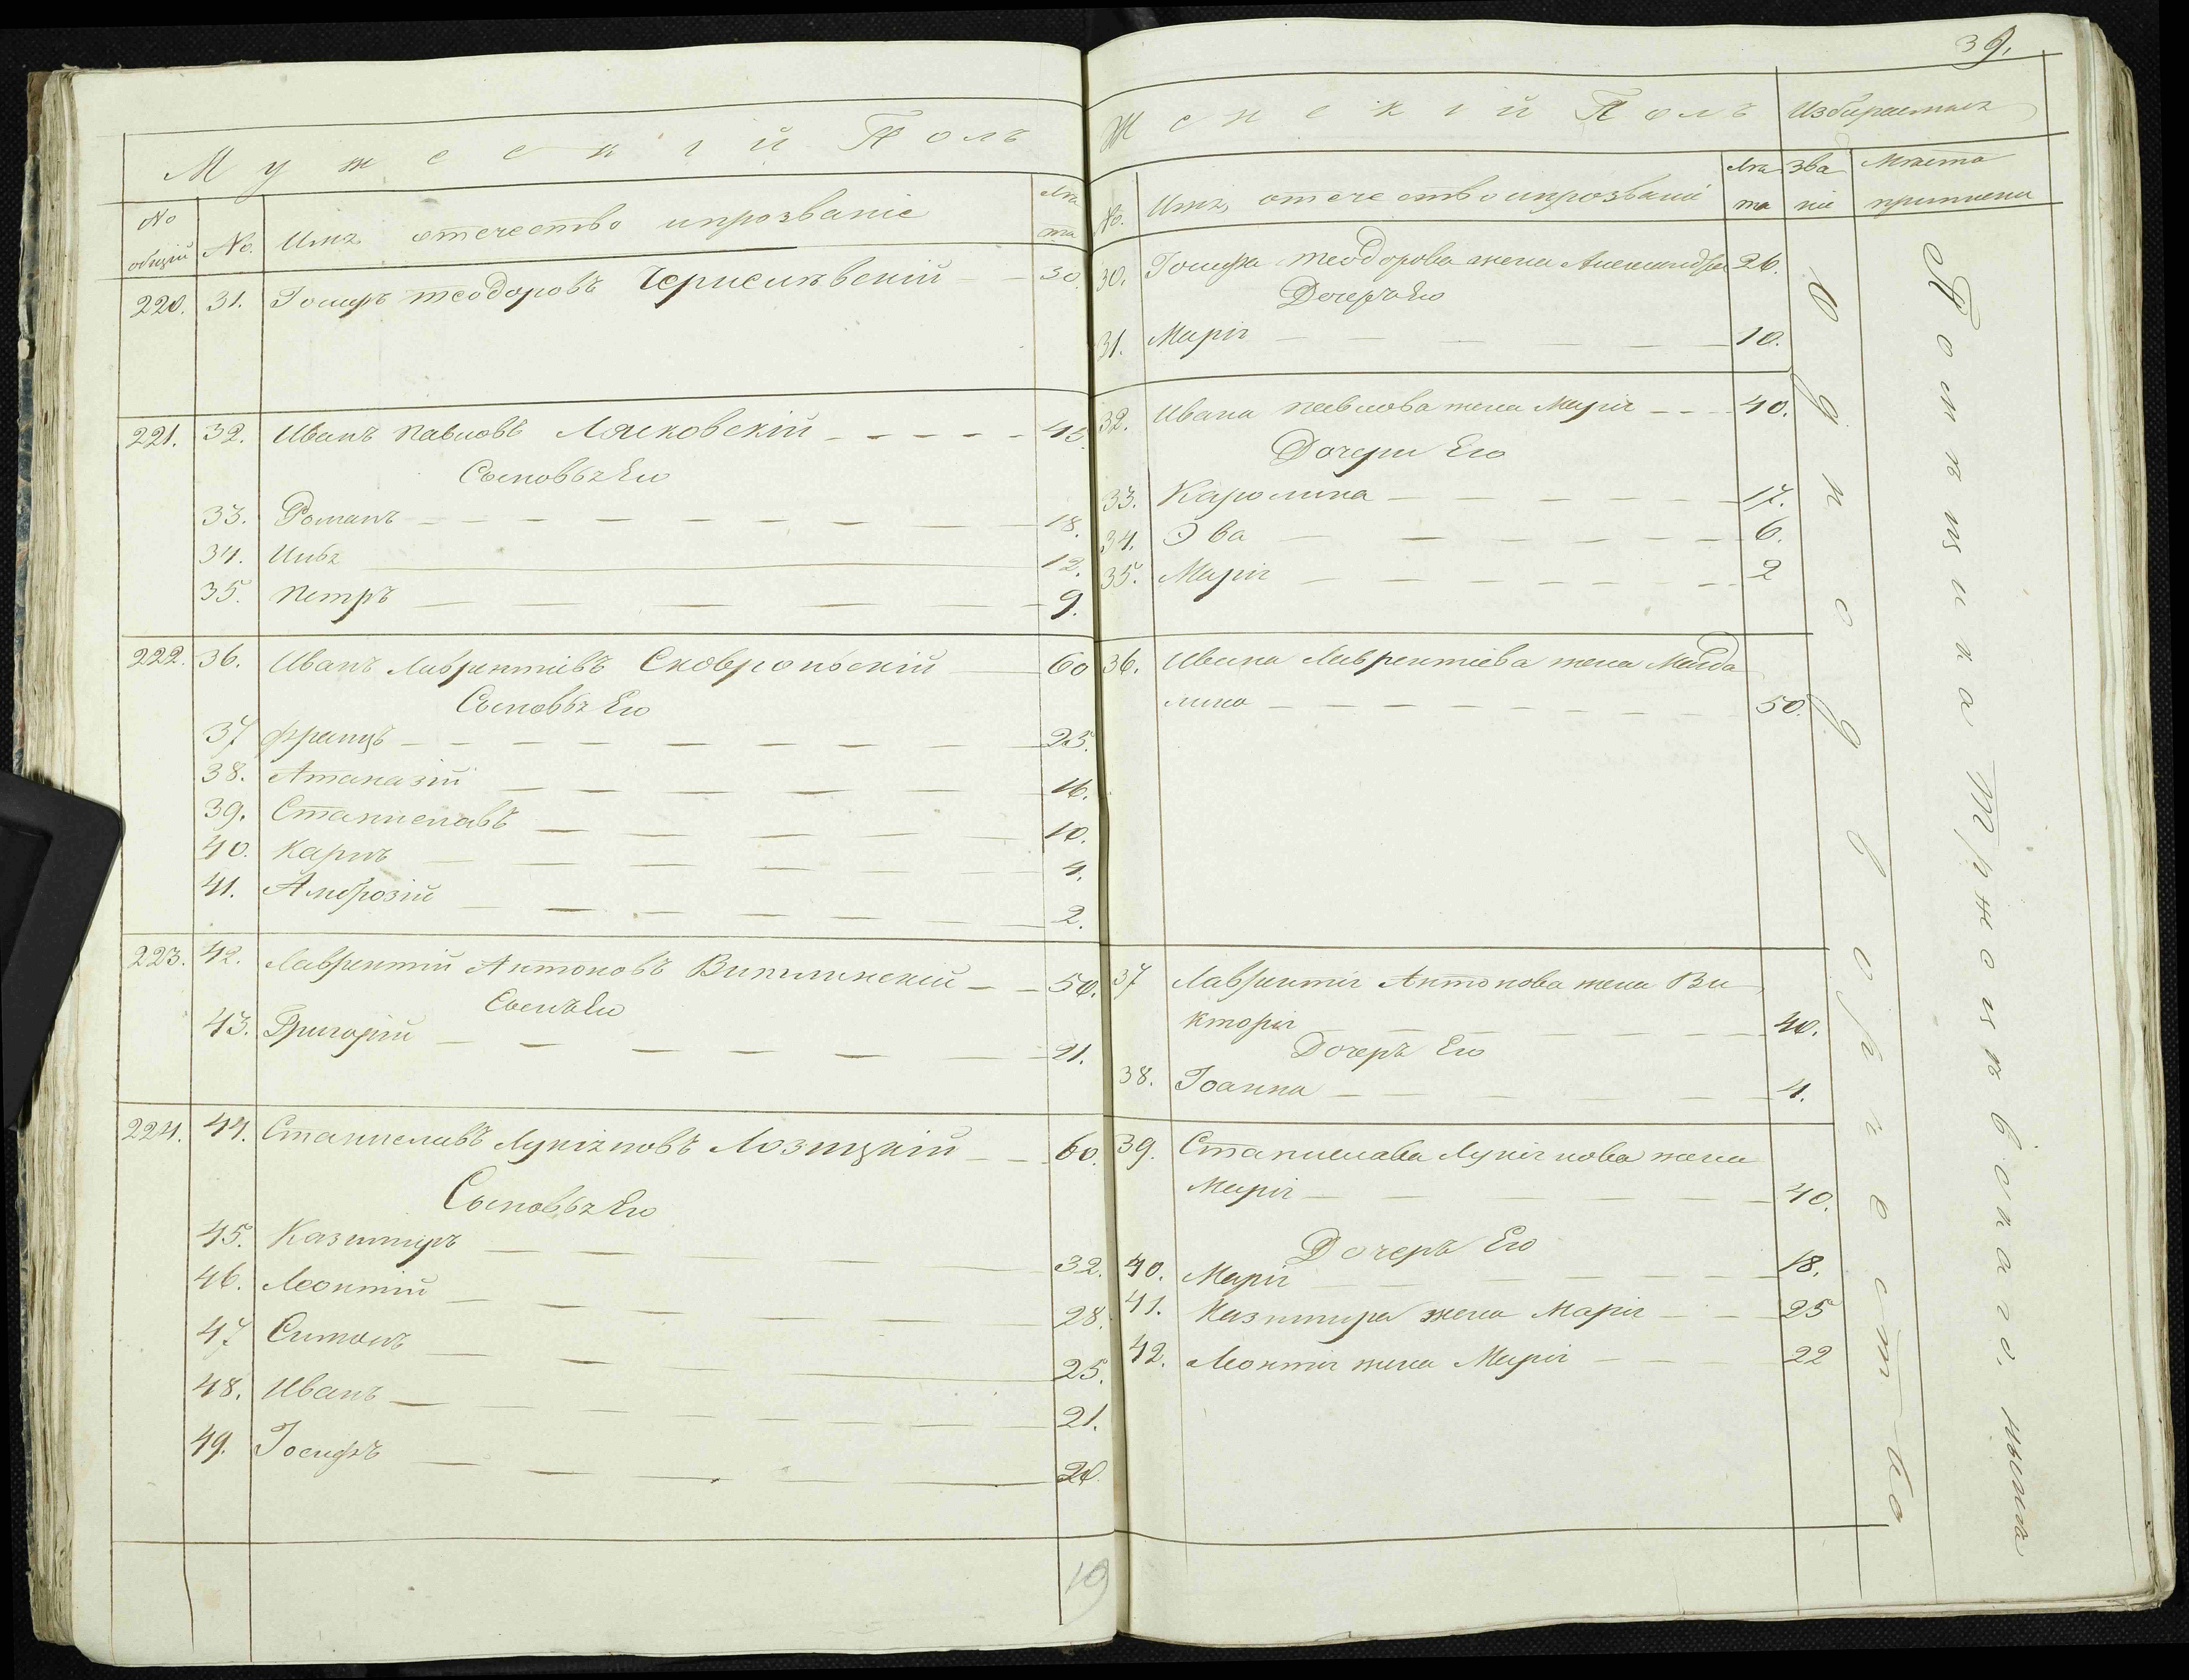 Мужескій Полъ
No общій No. Имя отечество ипрозваніе Лѣта
220. 31. Іосифъ теодоровъ 30.
221. 32. Иванъ павловъ Лясковскій 45
Сыновья Его
33. Романъ 18.
34. 12.
35. петръ 9.
222. 36. Иванъ Лаврентіевъ Сковронскій 60
Сыновья Его
37 францъ 25.
38. Атаназій 16.
39. Станиславъ 10.
40. Карлъ 4.
41. Амброзій 2.
223. 42. Лаврентій Антоновъ 50.
Сынъ Его
43. Григорій 21.
224. 44. Станиславъ Лукіяновъ Лозицкій 60.
Сыновья Его
45. Казимиръ 32.
46. Леонтій 28.
47 Симонъ 25.
48. Иванъ 21.
49. Іосифъ 20.
19
39.
Женскій Полъ Избираемыя
No. Имя, отечество ипрозваніе Лѣта Званіе Мѣста
30. Іосифа теодорова жена Александра 26.
Дочерь Его
31. Марія 10.
32. Ивана павлова жена Марія 40.
Дочери Его
33. Каролина 17.
34. Эва 6.
35. Марія 2
36. Ивана Лаврентіева жена Магда
лина 50.
37 Лаврентія Антонова жена Ви
кторія 40.
Дочерь Его
38. Іоанна 4.
39. Станислава Лукіянова жена
Марія 40.
Дочерь Его
40. Марія 18.
41. Казимира жена Марія 25
42. Леонтія жена Марія 22
Однодворчество